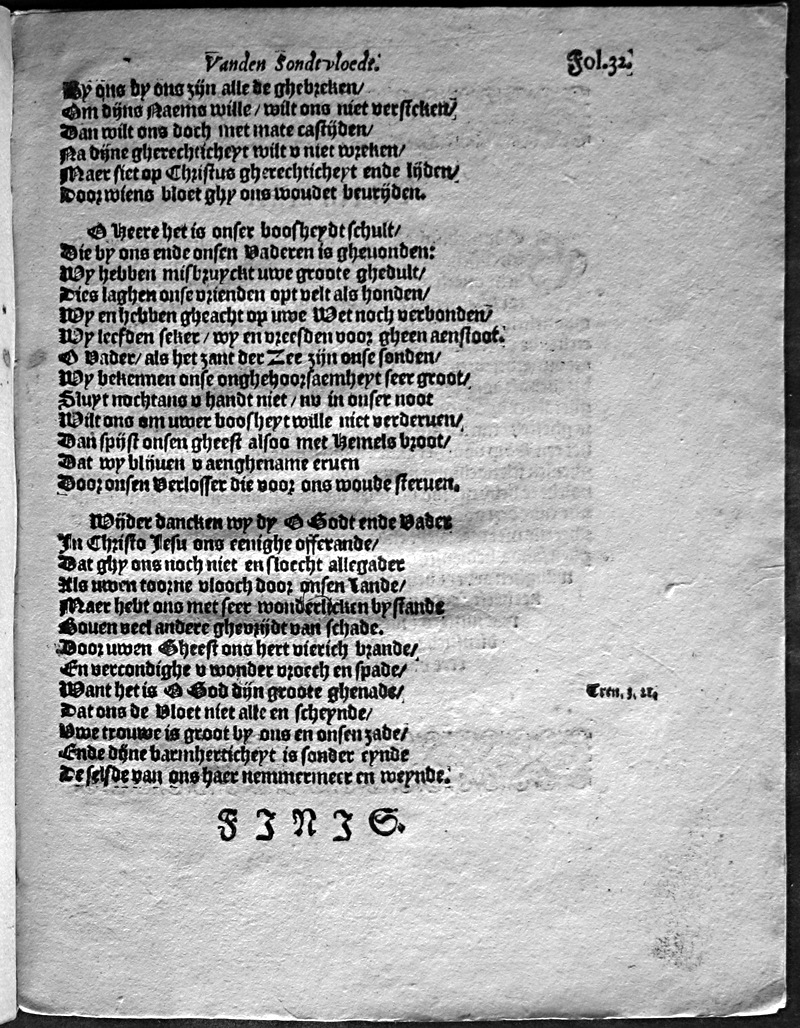 Vanden Sondtvloedt. Fol.32.
By ons by ons zijn alle de ghebreken/
Om dijns Naems wille/ wilt ons niet versteken/
Dan wilt ons doch met mate castijden/
Na dijne gherechticheyt wilt v niet wreken/
Maer siet op Christus gherechticheyt ende lijden/
Door wiens bloet ghy ons woudet bevrijden.
O Heere het is onser boosheydt schult/
Die by ons ende onsen Vaderen is gheuonden:
Wy hebben misbruyckt uwe groote ghedult/
Dies laghen onse vrienden opt velt als honden/
Wy en hebben gheacht op uwe Wet noch verbonden/
Wy leefden seker/ wy en vreesden voor gheen aenstoot.
O Vader/ als het zant der Zee zijn onse sonden/
Wy bekennen onse onghehoorsaemheyt seer groot/
Sluyt nochtans v handt niet/ nv in onser noot
Wilt ons om uwer boosheyt wille niet verderuen/
Dan spijst onsen gheest alsoo met Hemels broot/
Dat wy blijuen v aenghename eruen
Door onsen Verlosser die voor ons woude steruen.
Wijder dancken wy dy O Godt ende Vader
In Christo Jesu ons eenighe offerande/
Dat ghy ons noch niet en sloecht allegader
Als uwen toorne vlooch door onsen Lande/
Maer hebt ons met seer wonderlicken bystande
Bouen veel andere ghevrijdt van schade.
Door uwen Gheest ons hert vierich brande/
En vercondighe v wonder vroech en spade/
Want het is O God dijn groote ghenade/ Tren. 3. 22.
Dat ons de Vloet niet alle en scheynde/
Vwe trouwe is groot by ons en onsen zade/
Ende dijne barmherticheyt is sonder eynde
De selfde van ons haer nemmermeer en weynde.
FINIS.